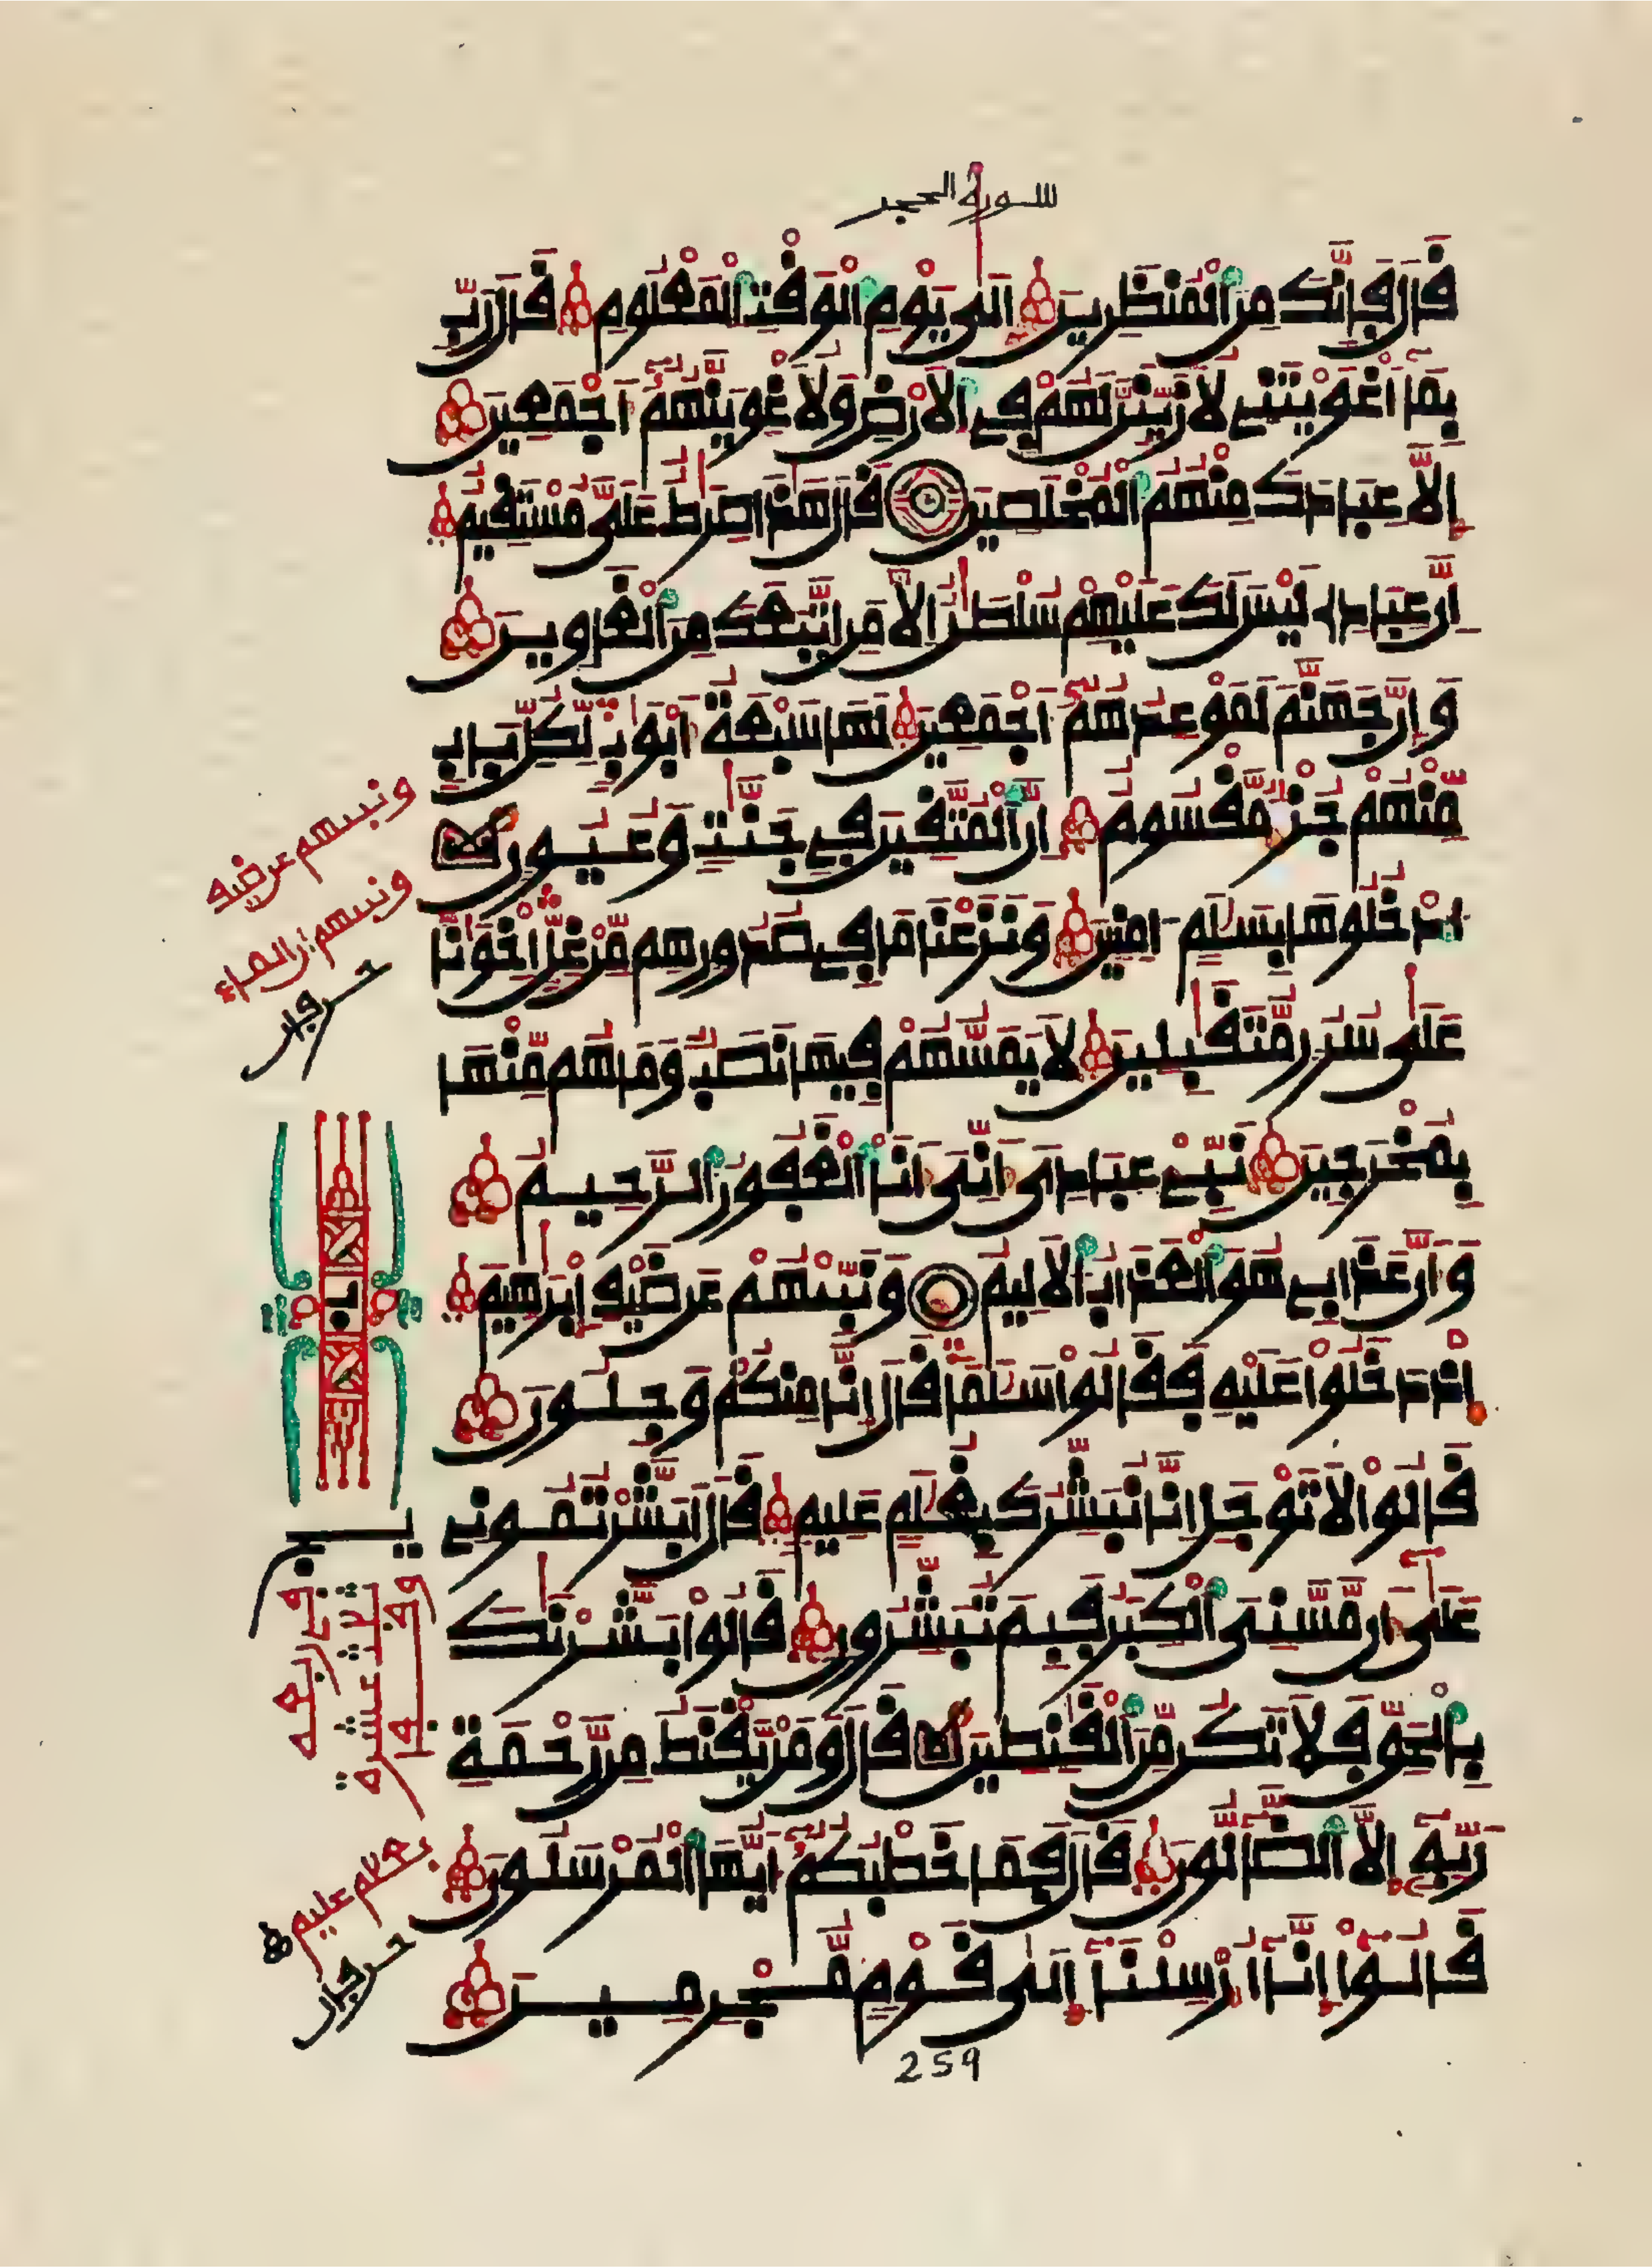 سورة الحجر
قَالَ فَإِنَّكَ مِنَ ٱلْمُنظَرِينَ إِلَىٰ يَوْمِ ٱلْوَقْتِ ٱلْمَعْلُومِ قَالَ رَبِّ
بِمَآ أَغْوَيْتَنِے لَأُزَيِّنَنَّ لَهُمْ فِے ٱلْأَرْضِ وَلَأُغْوِيَنَّهُمُۥٓ أَجْمَعِينَ
إِلَّا عِبَادَكَ مِنْهُمُ ٱلْمُخْلَصِينَ قَالَ هَٰذَا صِرَٰطٌ عَلَىَّ مُسْتَقِيمٌ
إِنَّ عِبَادِے لَيْسَ لَكَ عَلَيْهِمْ سُلْطَٰنٌ إِلَّا مَنِ ٱتَّبَعَكَ مِنَ ٱلْغَاوِينَ
وَإِنَّ جَهَنَّمَ لَمَوْعِدُهُمُۥٓ أَجْمَعِينَ لَهَا سَبْعَةُ أَبْوَٰبٍ لِّكُلِّ بَابٍ
مِّنْهُمْ جُزْءٌ مَّقْسُومٌ إِنَّ ٱلْمُتَّقِينَ فِے جَنَّٰتٍ وَعُيُونٍ
ٱدْخُلُوهَا بِسَلَٰمٍ ءَامِنِينَ وَنَزَعْنَا مَا فِے صُدُورِهِم مِّنْ غِلٍّ إِخْوَٰنًا
عَلَىٰ سُرُرٍ مُّتَقَٰبِلِينَ لَا يَمَسُّهُمْ فِيهَا نَصَبٌ وَمَا هُم مِّنْهَا
بِمُخْرَجِينَ نَبِّۓْ عِبَادِىَ أَنِّىَ أَنَا ٱلْغَفُورُ ٱلرَّحِيمُ
وَأَنَّ عَذَابِے هُوَ ٱلْعَذَابُ ٱلْأَلِيمُ وَنَبِّئْهُمْ عَن ضَيْفِ إِبْرَٰهِيمَ
إِذْ دَخَلُوا۟ عَلَيْهِ فَقَالُوا۟ سَلَٰمًا قَالَ إِنَّا مِنكُمْ وَجِلُونَ
قَالُوا۟ لَا تَوْجَلْ إِنَّا نُبَشِّرُكَ بِغُلَٰمٍ عَلِيمٍ قَالَ أَبَشَّرْتُمُونِے
عَلَىٰٓ أَن مَّسَّنِىَ ٱلْكِبَرُ فَبِمَ تُبَشِّرُونِ قَالُوا۟ بَشَّرْنَٰكَ
بِٱلْحَقِّ فَلَا تَكُن مِّنَ ٱلْقَٰنِطِينَ قَالَ وَمَنْ يَّقْنَطُ مِن رَّحْمَةِ
رَبِّهِۦٓ إِلَّا ٱلضَّآلُّونَ قَالَ فَمَا خَطْبُكُمُۥٓ أَيُّهَا ٱلْمُرْسَلُونَ
قَالُوٓا۟ إِنَّآ أُرْسِلْنَآ إِلَىٰ قَوْمٍ مُّجْرِمِينَ
259
ونبيهم عن ضيف
ونبيهم ان الماء
حرفان
بغلام عليم
حرفان